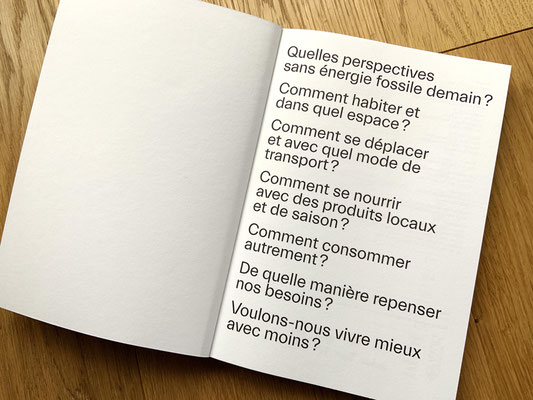 Quelles perspectives
sans énergie fossile demain ?
Comment habiter et
dans quel espace ?
Comment se déplacer
et avec quel mode de
transport ?
Comment se nourrir
avec des produits locaux
et de saison ?
Comment consommer
autrement ?
De quelle manière repenser
nos besoins ?
Voulons-nous vivre mieux
avec moins ?